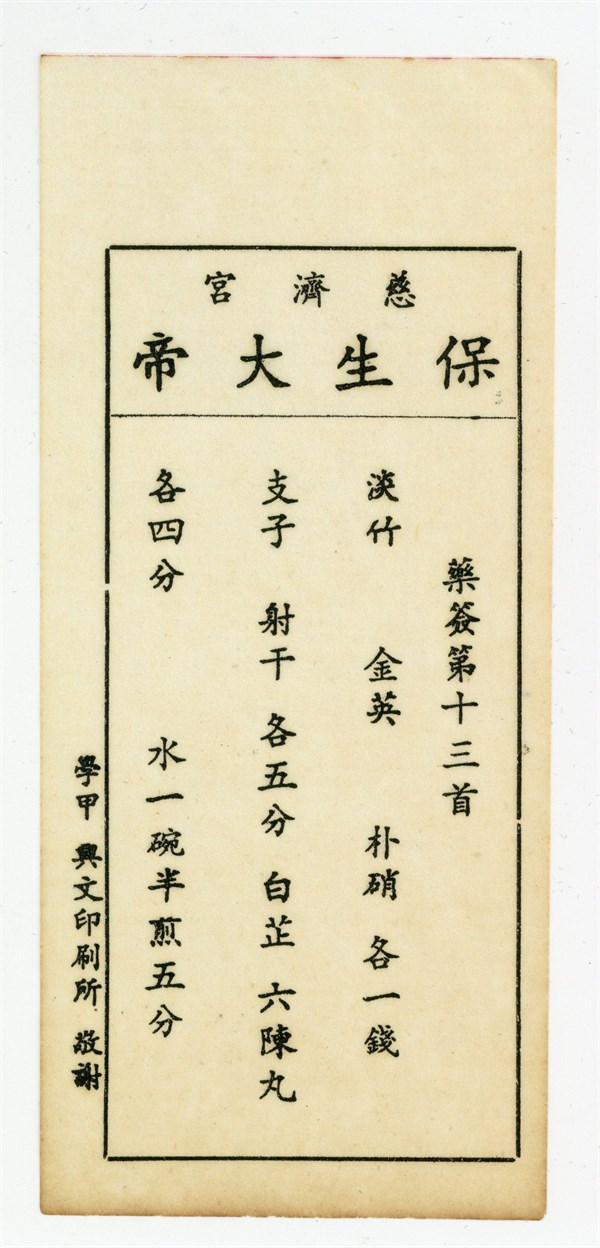 慈濟宮
保生大帝
藥簽第十三首
淡竹 金英 朴硝 各一錢
支子 射干 各五分 白芷 六陳丸
各四分 水一碗半煎五分
學甲 興文印刷所 敬謝